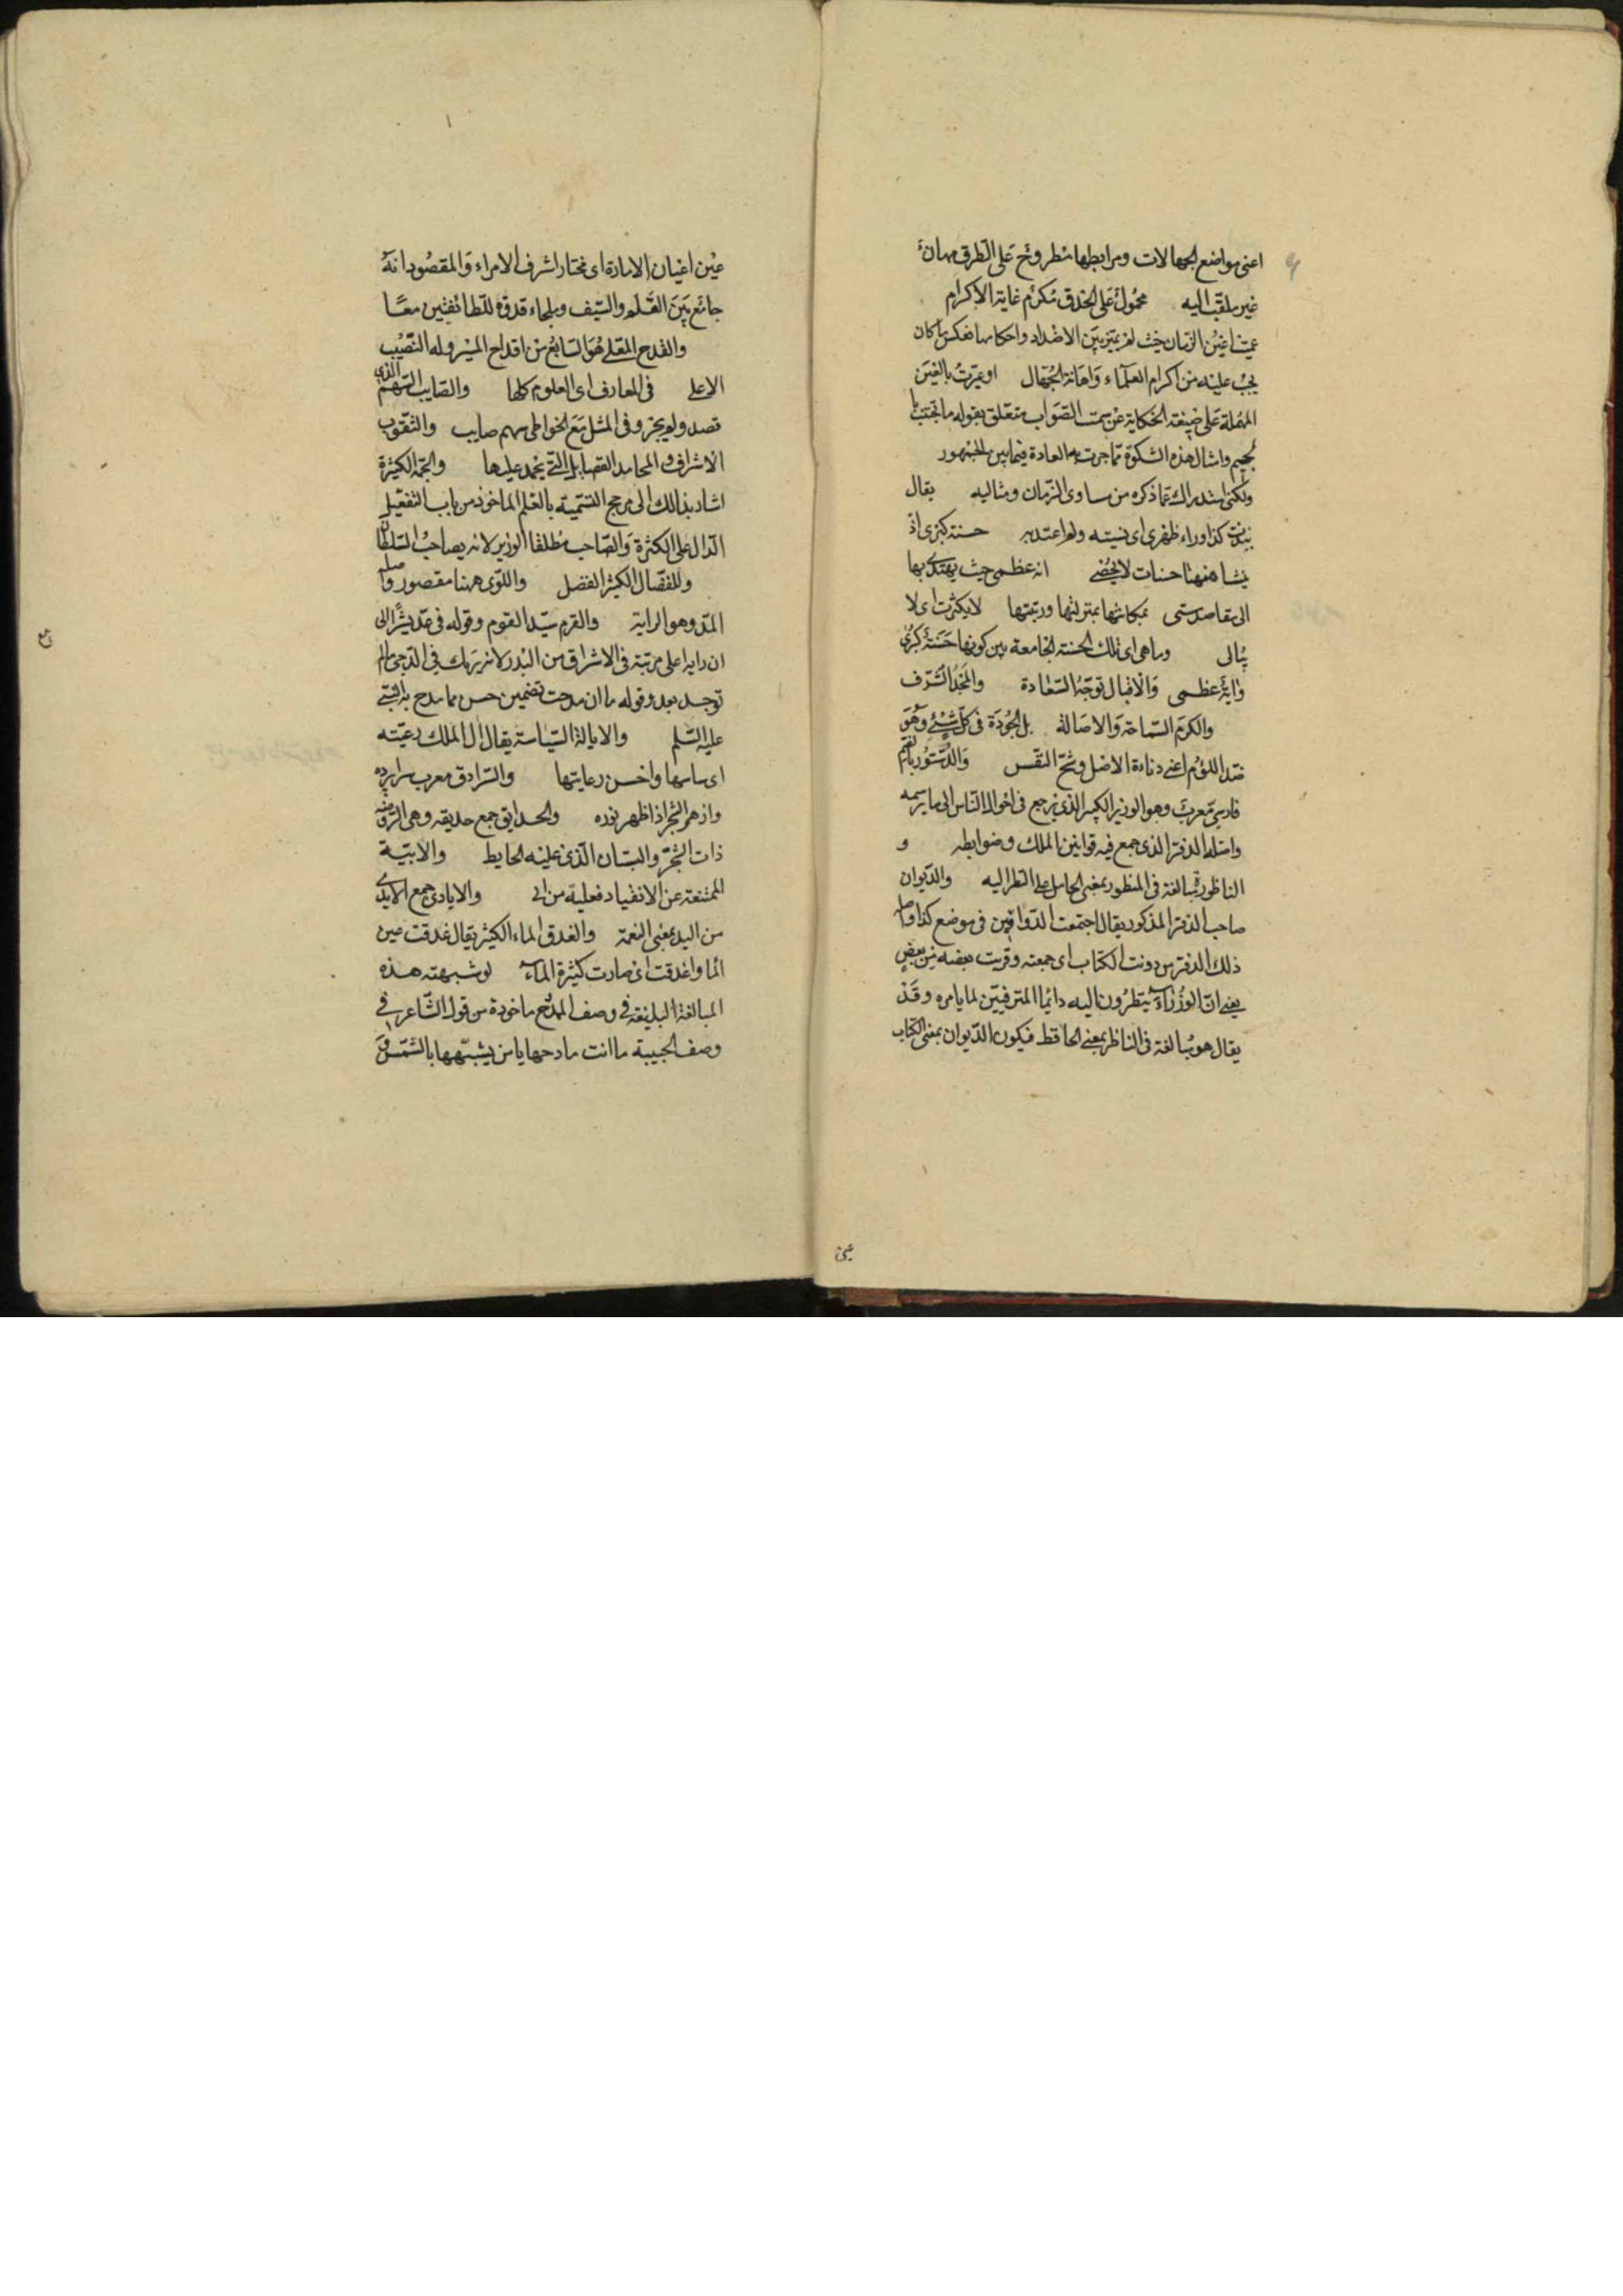 اعنى مواضع الجهالات ومرابطها مطروح على الطرق مهان
غير ملتفت اليه محمول على الحدق مكرم غاية الاكرام
عميت اعين الزمان حيث لم يميز بين الاضداد واحكامها فعكس ما كان
يجب عليه من اكرام العلماء واهانة الجهال او عيرت بالغين
المهملة على صيغة الحكاية عن سمت الصواب متعلق بقوله ما تجتنب
وامثال هذه الشكوة مما جرت به العادة فيما بين الجمهور
ولكنى استدراك عما ذكره من مساوى الزمان ومثالبه يقال
نبذت كذا وراء ظهرى اى نسيته ولم اعتد به حسنة كبرى اذ
ينشا منها حسنات لا تحصى انه عظمى حيث يهتدى بها
الى مقاصد شتى بمكانتها بمنزلتها ورتبتها لا يكترث اى لا
يبالى وما هى اى تلك الحسنة الجامعة بين كونها حسنة كبرى
واية عظمى والاقبال توجه السعادة والمجد الشرف
والكرم السماحة والاصالة بل الجودة فى كل شىء وهو
ضد اللؤم اعنى دناءة الاصل وشح النفس والدستور بالضم
فارسى معرب وهو الوزير الكبير الذى يرجع فى احوال الناس الى ما يرسمه
واصله الدفتر الذى جمع فيه قوانين الملك وضوابطه و
الناظورة مبالغة فى المنظور بمعنى الحامل على النظر اليه والديوان
صاحب الدفتر المذكور يقال اجتمعت الدواوين فى موضع كذا واصل
ذلك الدفتر من دونت الكتاب اى جمعته وقربت بعضه من بعض
يعنى ان الوزراء ينتظرون اليه دائما المترقبين لما يامره وقد
يقال هو مبالغة فى الناظر بمعنى الحافظ فيكون الديوان بمعنى الكتاب
عين
عين اعيان الامارة اى مختار اشرف الامراء والمقصود انه
جامع بين القلم والسيف وملجاء قدوة للطائفتين معا
والقدح المعلى هو السابع من اقداح الميسر وله النصيب
الاعلى فى المعارف اى العلوم كلها والصايب السهم الذى
قصد ولم يجز وفى المثل مع الخواطى سهم صايب والثقوب
الاشراق والمحامد الفضايل التى يحمد عليها والجمة الكثيرة
اشار بذالك الى مرجح التسمية بالعلم الماخوذ من باب التفعيل
الدال على الكثرة والصاحب مطلقا الوزير لانه يصاحب السلطان
والمفضال الكثير الفضل واللوى ههنا مقصور واصله
المد وهو الراية والقرم سيد القوم وقوله فى مد يشير الى
ان رايه اعلى مرتبة فى الاشراق من البدر لانه يريك فى الدجى ما لم
توجد بعد وقوله ما ان مدحت تضمين حسن مما مدح به النبى
عليه السلم والايالة السياسة يقال ال الملك رعيته
اى ساسها واحسن رعايتها والسرادق معرب سرا پرده
وازهر الشجر اذا ظهر نوره والحدايق جمع حديقه وهى الروضة
ذات الشجر والبستان الذى عليه الحايط والابية
الممتنعة عن الانقياد فعيلة من ابى والايادى جمع الايدى
من اليد بمعنى النعمة والغدق الماء الكثير يقال غدقت عين
الما واغدقت اى صارت كثيرة الماء لو شبهته هذه
المبالغة البليغة فى وصف المدح ماخوذة من قول الشاعر فى
وصف الحبيبة ما انت مادحها يا من يشبهها بالشمس و